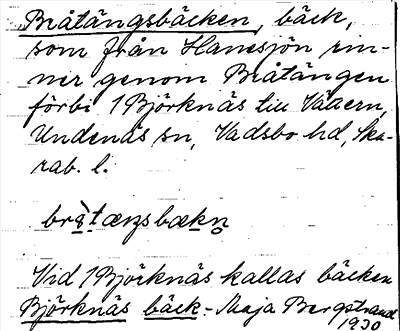 Bråtängsbäcken, bäck,
som från Hanesjön rin-
ner genom Bråtängen
förbi 1 Björknäs till Vättern,
Undenäs sn, Vadsbo hd, Ska-
rab. l.
Vid 1 Björknäs kallas bäcken
Björknäs bäck. Maja Bergstrand
1930